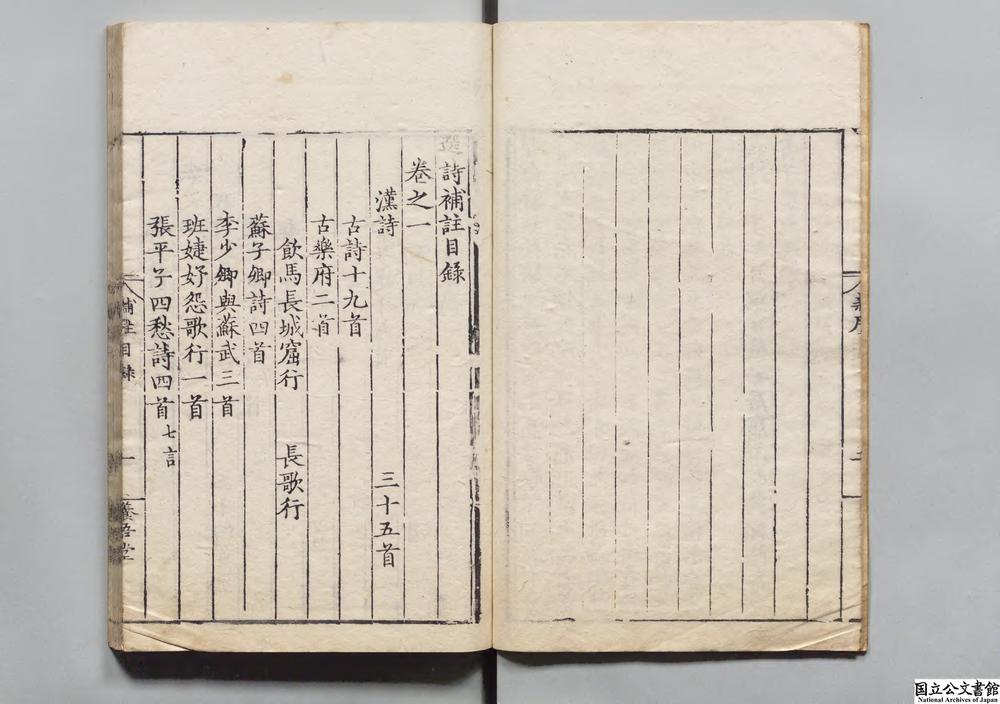 選詩補註目錄
卷之一
漢詩　三十五首
古詩十九首
古樂府二首
飲馬長城窟行　長歌行
蘇子卿詩四首
李少卿與蘇武三首
班婕妤怨歌行一首
張平子四愁詩四首七言
補註目錄　一
養吾堂
国立公文書館
National Archives of Japan